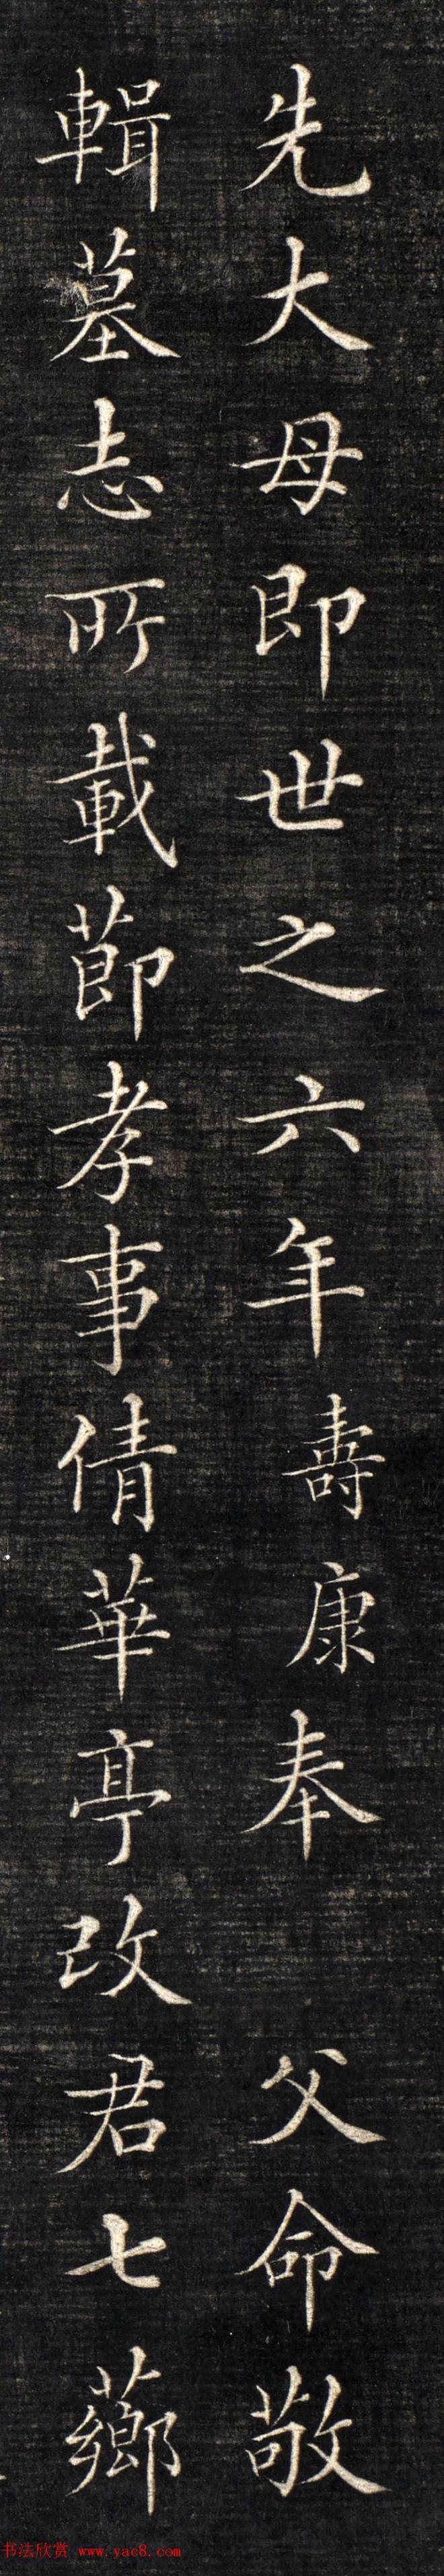 先大母即世之六年壽康奉 父命敬
輯墓志所載節孝事倩華亭改君七薌
书法欣赏 www.yac8.com